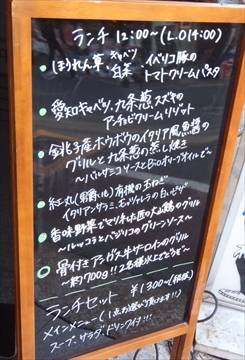 ランチ 12:00〜(L.O14:00)
ほうれん草、キャベツ 白菜 イベリコ豚の
トマトクリームパスタ
愛知キャベツ、九条葱、スズキの
アンチョビクリームリゾット
銚子産ホウボウのイタリア風魚醤の
グリルと九条葱の蒸し焼き
〜バルサミコソースとExオリーブオイルで〜
有機の玉ねぎ
イタリアンサラミ、モッツァレラの白いピザ
香味野菜で
〜ルッコラとバジリコのグリーンソース〜
骨付きアンガス牛サーロインのグリル
〜約700g!!2名様
ランチセット ¥1300〜(税抜)
メインメニュー(1点お選び頂けます!!)
スープ、サラダ、ドリンク付!!!